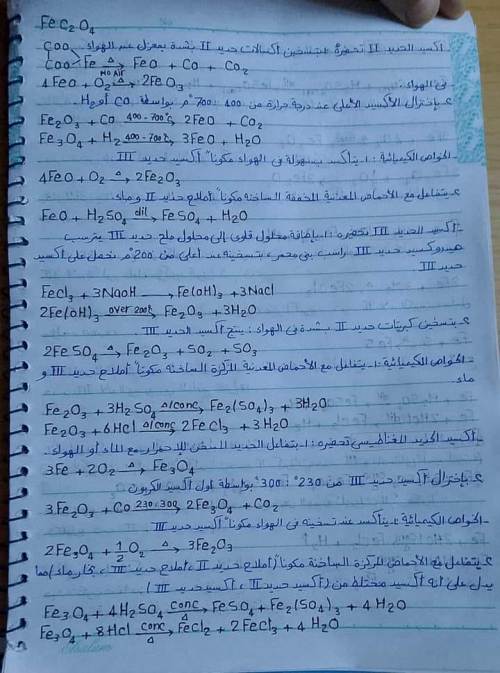 FeC₂O₄
أكسيد الحديد II تحضيره: ١ـ بتسخين أكسالات حديد II بشدة بمعزل عن الهواء.
COO
COO > Fe —Δ/No Air→ FeO + CO + CO₂
فى الهواء.
4FeO + O₂ —Δ→ 2Fe₂O₃
٢ـ بإختزال الأكسيد الأعلى عند درجة حرارة من 400 : 700°م بواسطة CO أو H₂.
Fe₂O₃ + CO —400-700°c→ 2FeO + CO₂
Fe₃O₄ + H₂ —400-700°c→ 3FeO + H₂O
ـ الخواص الكيميائية: ١ـ يتأكسد بسهولة فى الهواء مكوناً أكسيد حديد III.
4FeO + O₂ —Δ→ 2Fe₂O₃
٢ـ يتفاعل مع الأحماض المعدنية المخففة الساخنة مكوناً أملاح حديد II وماء.
FeO + H₂SO₄ —dil→ FeSO₄ + H₂O
ـ أكسيد الحديد III تحضيره: ١ـ بإضافة محلول قلوى إلى محلول ملح حديد III يترسب
هيدروكسيد حديد III راسب بنى محمر، بتسخينه عند أعلى من 200°م نحصل على أكسيد
حديد III
FeCl₃ + 3NaOH → Fe(OH)₃ + 3NaCl
2Fe(OH)₃ —over 200°c→ Fe₂O₃ + 3H₂O
٢ـ بتسخين كبريتات حديد II بشدة فى الهواء: ينتج أكسيد الحديد III
2FeSO₄ —Δ→ Fe₂O₃ + SO₂ + SO₃
ـ الخواص الكيميائية: ١ـ يتفاعل مع الأحماض المعدنية المركزة الساخنة مكوناً أملاح حديد III و
ماء.
Fe₂O₃ + 3H₂SO₄ —Δ/conc→ Fe₂(SO₄)₃ + 3H₂O
Fe₂O₃ + 6HCl —Δ/conc→ 2FeCl₃ + 3H₂O
ـ أكسيد الحديد المغناطيسى تحضيره: ١ـ بتفاعل الحديد المسخن للإحمرار مع الماء أو الهواء.
3Fe + 2O₂ —Δ→ Fe₃O₄
٢ـ بإختزال أكسيد حديد III من 230° : 300° بواسطة أول أكسيد الكربون
3Fe₂O₃ + CO —230:300→ 2Fe₃O₄ + CO₂
ـ الخواص الكيميائية: ١ـ يتأكسد عند تسخينه فى الهواء مكوناً أكسيد حديد III
2Fe₃O₄ + 1/2 O₂ —Δ→ 3Fe₂O₃
٢ـ يتفاعل مع الأحماض المركزة الساخنة مكوناً (أملاح حديد II، أملاح حديد III، بخار ماء) مما
يدل على أنه أكسيد مختلط من (أكسيد حديد II، أكسيد حديد III)
Fe₃O₄ + 4H₂SO₄ —conc→ FeSO₄ + Fe₂(SO₄)₃ + 4H₂O
Fe₃O₄ + 8HCl —conc/Δ→ FeCl₂ + 2FeCl₃ + 4H₂O